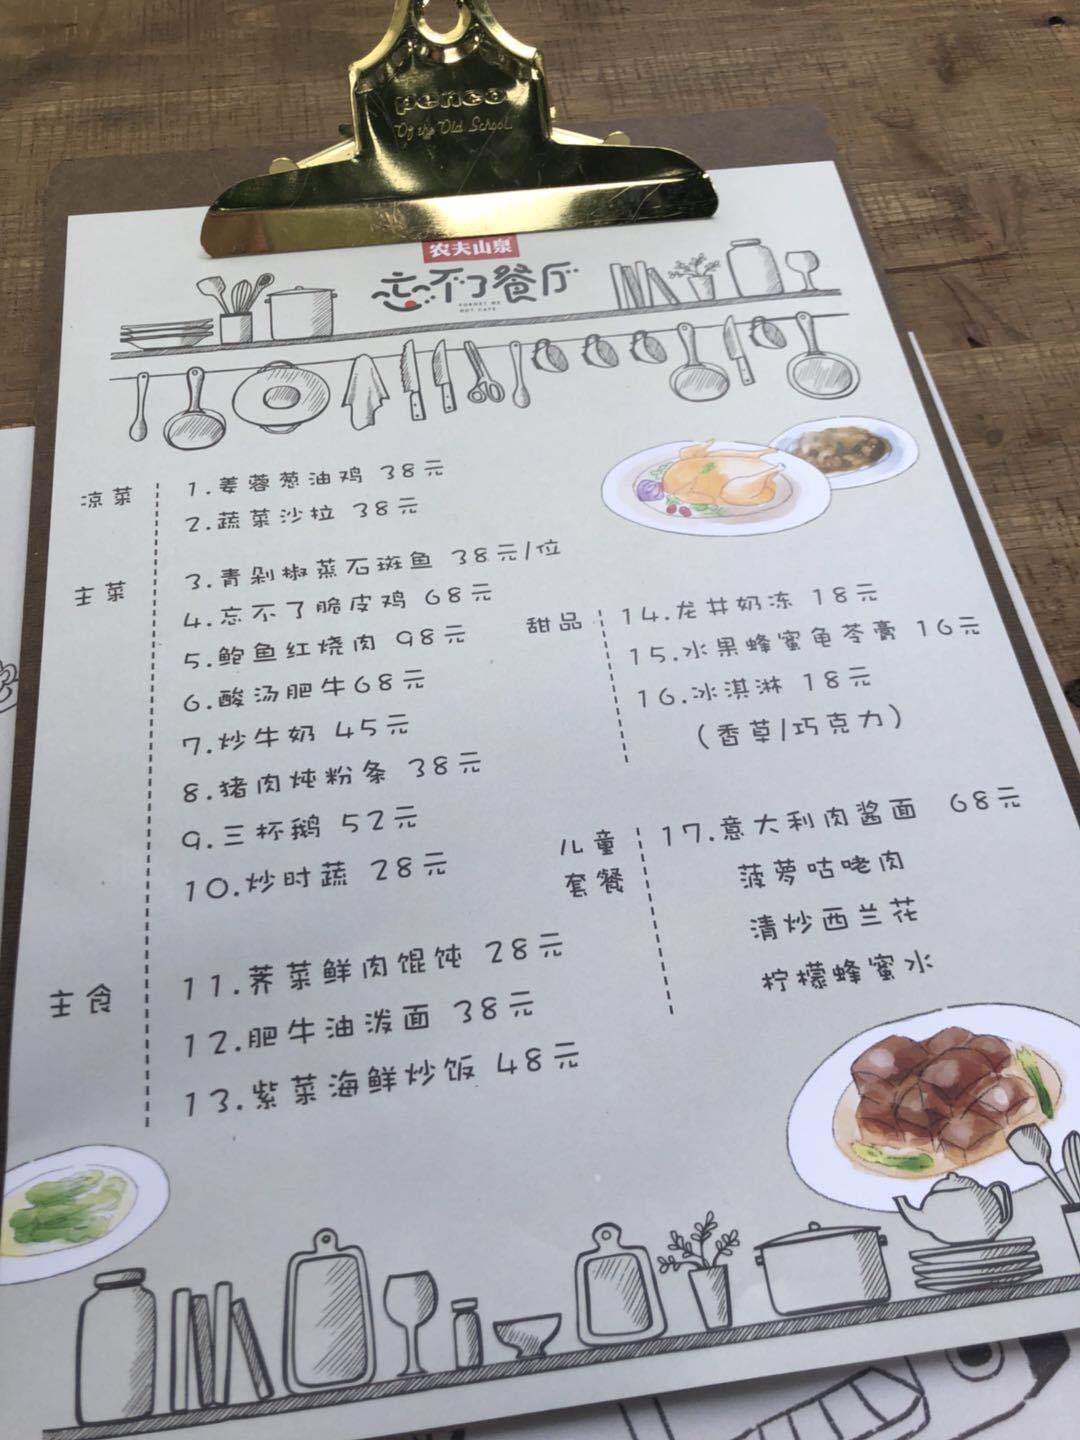 penco
Of the Old School
农夫山泉
忘不了餐厅
FORGET ME
NOT CAFE
凉菜
1.姜蓉葱油鸡 38元
2.蔬菜沙拉 38元
主菜
3.青剁椒蒸石斑鱼 38元/位
4.忘不了脆皮鸡 68元
5.鲍鱼红烧肉 98元
6.酸汤肥牛68元
7.炒牛奶 45元
8.猪肉炖粉条 38元
9.三杯鹅 52元
10.炒时蔬 28元
主食
11.荠菜鲜肉馄饨 28元
12.肥牛油泼面 38元
13.紫菜海鲜炒饭 48元
甜品
14.龙井奶冻 18元
15.水果蜂蜜龟苓膏 16元
16.冰淇淋 18元
（香草/巧克力）
儿童
套餐
17.意大利肉酱面 68元
菠萝咕咾肉
清炒西兰花
柠檬蜂蜜水